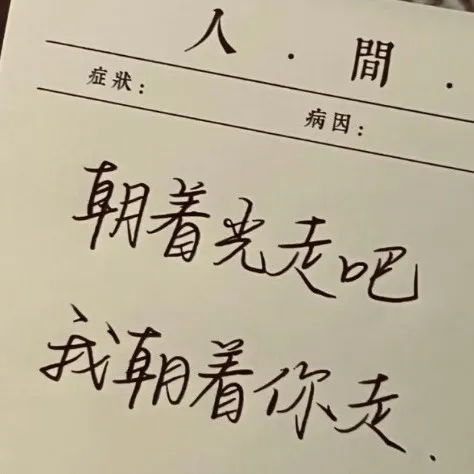 人.間.
症狀: 病因:
朝着光走吧
我朝着你走.